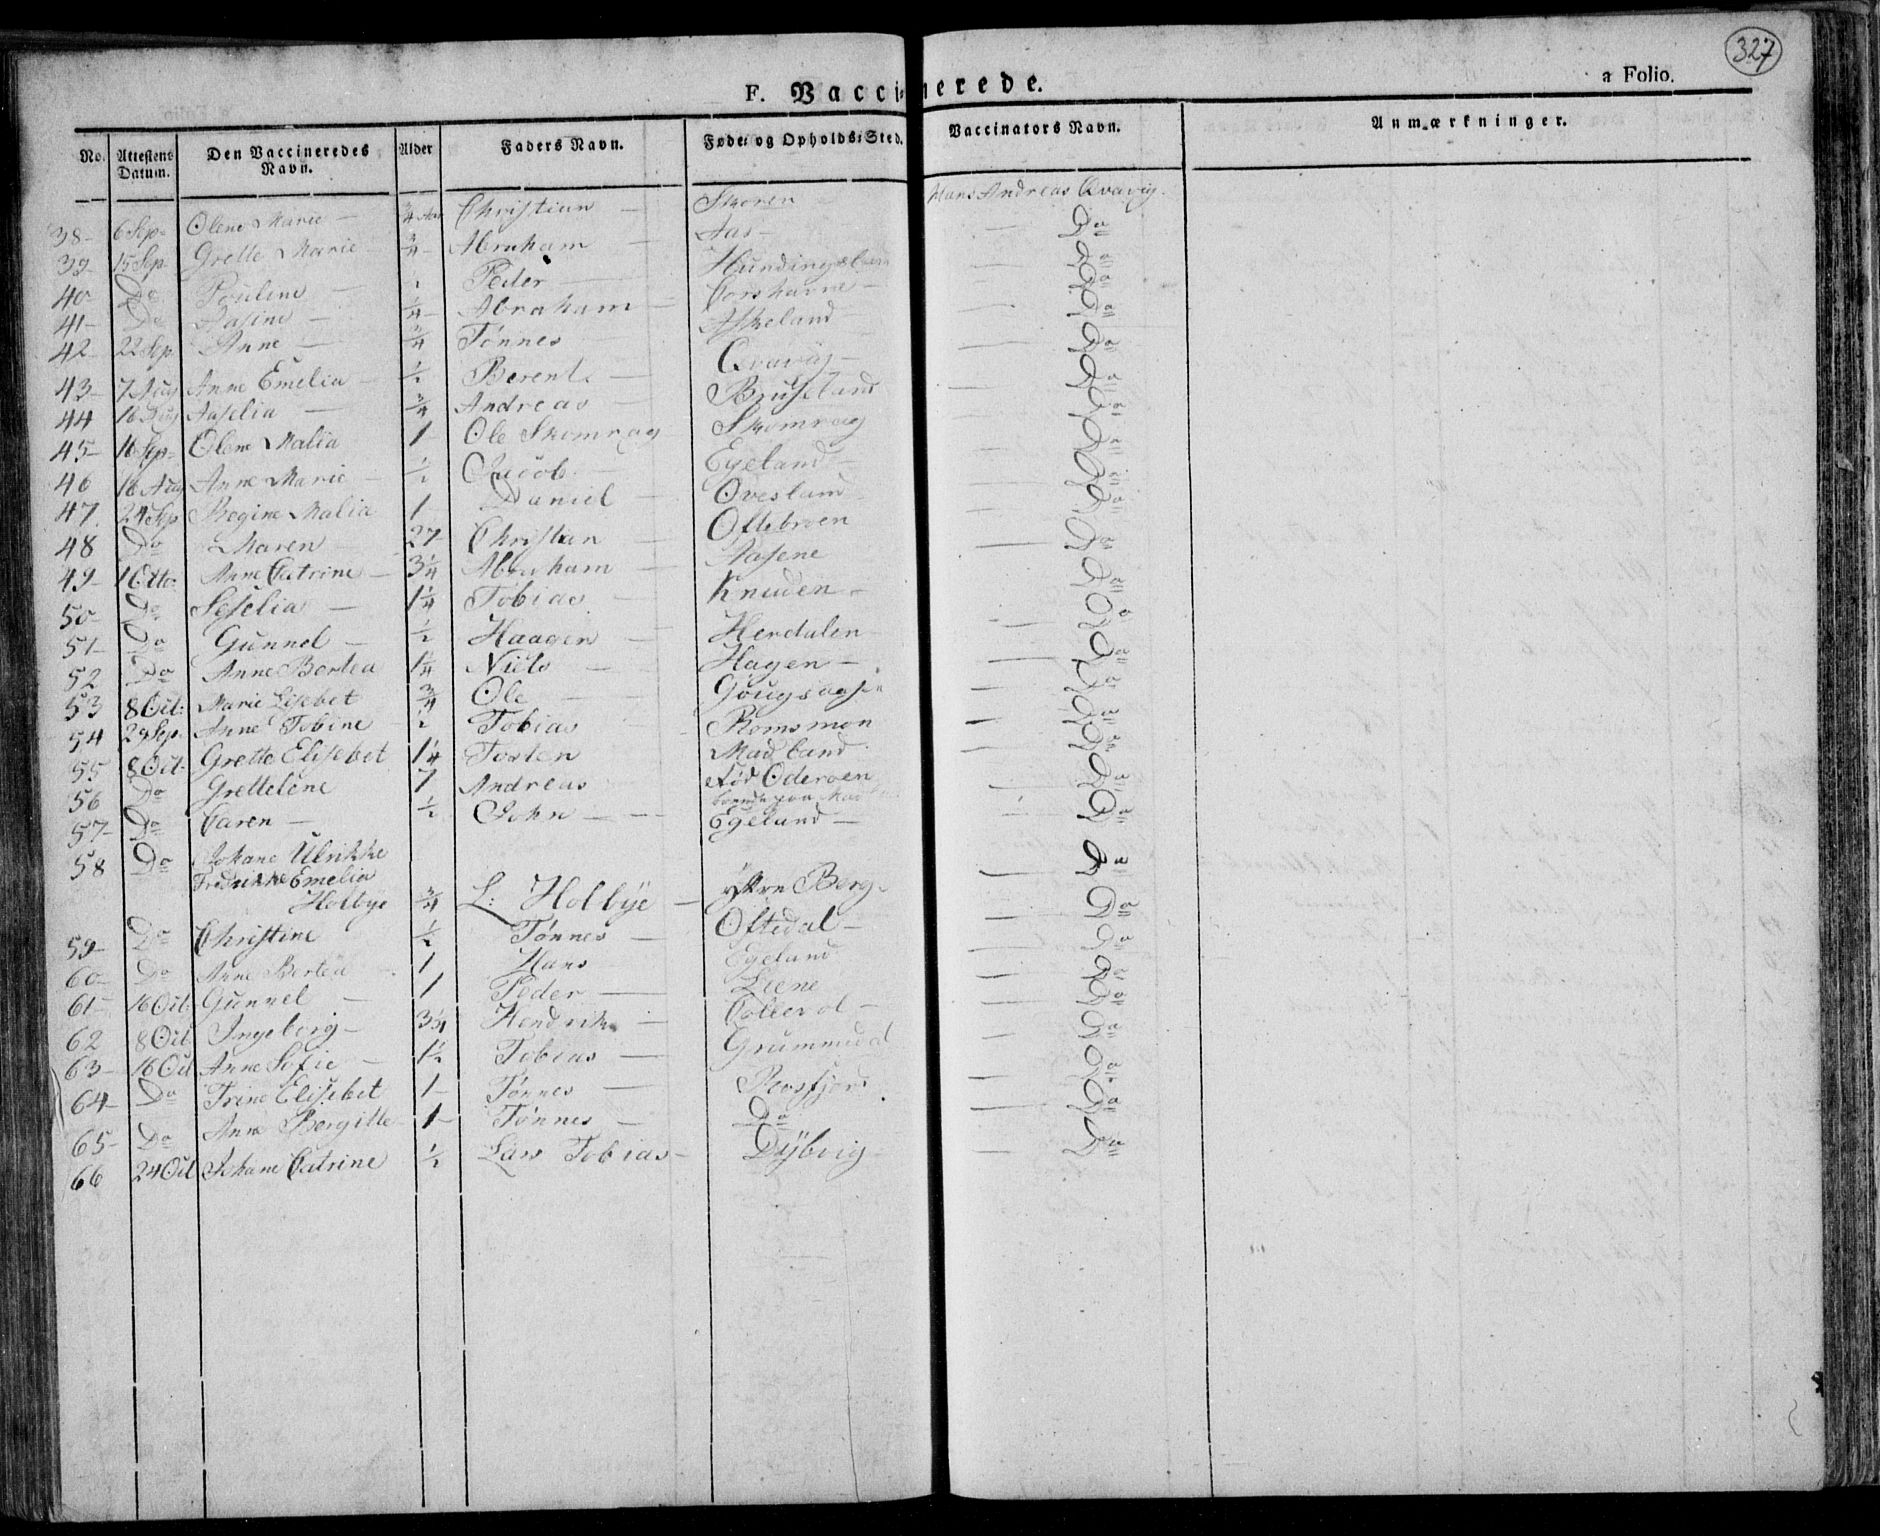 327
F. Vaccinerede.
a Folio.
No. Attestens Datum. Den Vaccineredes Navn. Alder Faders Navn. Føde- og Opholds-Sted. Vaccinators Navn. Anmærkninger.
38- 6 Sep- Olene Marie - 3/4 Aar Christian - Skoren - Hans Andreas Qvavig.
39- 15 Sep Grette Marie - 3/4 - Abraham - Aas - - Do
40- Do Pouline - Peder - - Do
41- Do Aasine - 1/4 - Abraham - - Do
42- 22 Sep Anne - 3/4 Tønnes Askeland - Do
43- 7 Aug Anne Emelia - 1/2 Berent - Qvavig - - Do
44 16 Aug Aaselia - 3/4 Andreas - Bruseland - Do
45- 16 Sep- Olene Malia 1 - Ole Skomrag Skomrag - Do
46 16 Aug Anne Marie - 1/2 Jacob - Egeland - - Do
47. 24 Sep Regine Malia 1 Daniel - Ovesland - Do
48 Do Maren - 27 Christian - Oftebroen - Do
49- 1 Octo- Anne Catrine - 3 1/4 Abraham - Aasene - Do
50- Do Seselia - 1 1/4 Tobias - Knuden - - Do
51- Do Gunnel - 1/2 Haagen - Herdalen - - Do
52 Do Anne Bertea 1 1/4 Niels - Hagen - - Do
53 8 Oct: Marie Lisebet 3/4 Ole - - Do
54 29 Sep. Anne Tobine - 1/2 Tobias Romsmon - Do
55 8 Oct- Grette Elisebet 1 1/4 Tosten Madland - Do
56 Do Grettelene 7 Andreas fød Oderoen - Do
57- Do Caren - 1/2 John - - Egeland - - Do
58 Do Johane Ulrikke - Do
Fredrikke Emelia
Holbye 3/4 L: Holbÿe - Berg - Do
59- Do Christine 1/2 Tønnes - Oftedal - - Do
60- Do Anne Bertea - 1 Hans Egeland - Do
61- 16 Oct: Gunnel - 1 Peder - Liene - Do
62 8 Oct Ingeborg - 3 1/4 Hendrik - - Do
63- 16 Oct Anne Sofie - 1 1/2 Tobias - - Do
64- Do Trine Elisebet 1 - Tønnes - Rosfjord - Do
65- Do Anne Bergitte - 1 - Tønnes - Do - Do
66 24 Oct Johane Catrine 1/2 Lars Tobias - Dÿbvig - Do